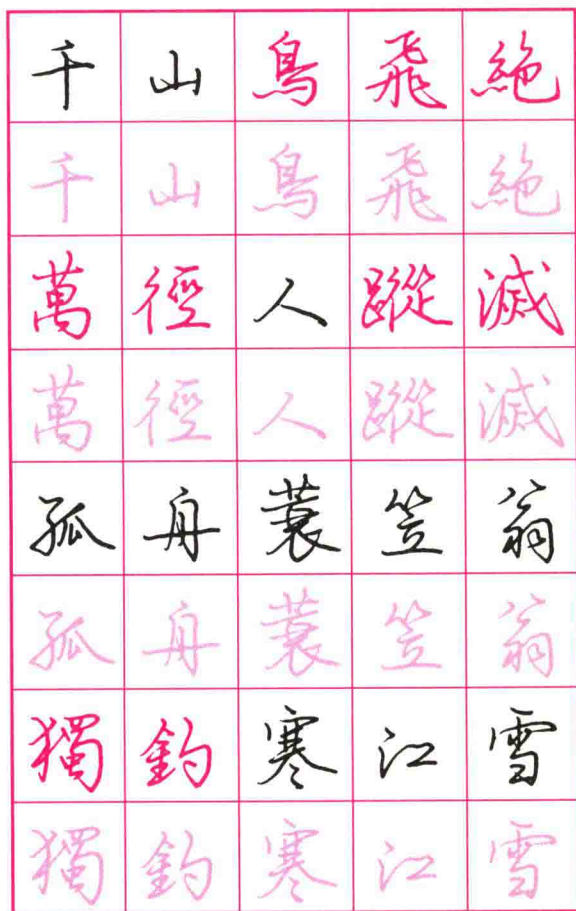 千山鳥飛絕
千山鳥飛絕
萬徑人蹤滅
萬徑人蹤滅
孤舟蓑笠翁
孤舟蓑笠翁
獨釣寒江雪
獨釣寒江雪